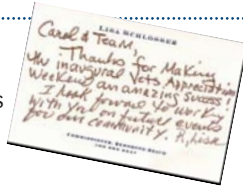 LISA SCHLOSSER
Carol & Team,
Thanks for Making
the inaugural Jets Appreciation
Weekend an amazing success!
I look forward to working
with you on future events
for our community.
Lisa
COMMISSIONER, REHOBOTH BEACH
s